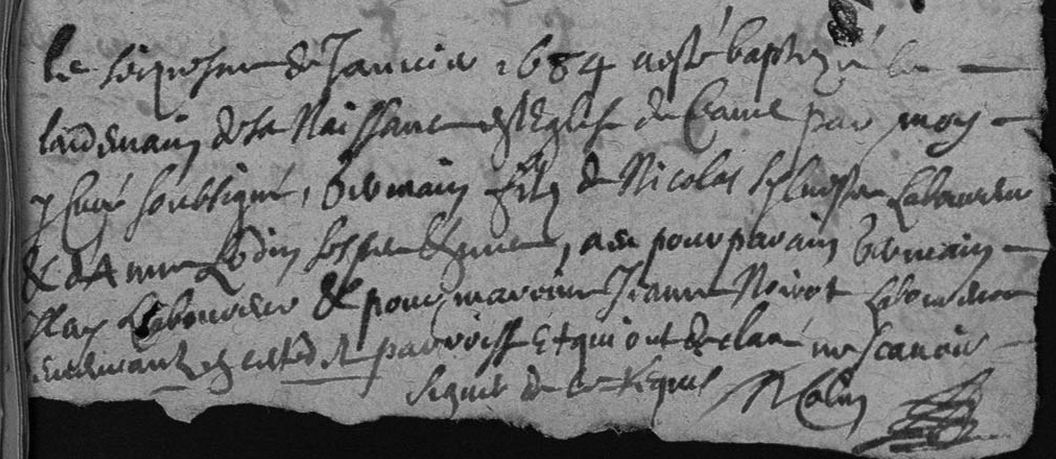 Le seiziesme de Janvier 1684 a esté baptizé le
landemain de sa Naissance en l'Eglise de Ceans par moy
curé soubsigné, Germain filz de Nicolas Sylvestre Laboureur
& d'Anne Lodin ses pere & mere, a eu pour parain Germain
Laboureur & pour maraine Jeanne Noirot
demeurants en cested. parroisse Et qui ont declaré ne scavoir
signer de ce requis N Colin